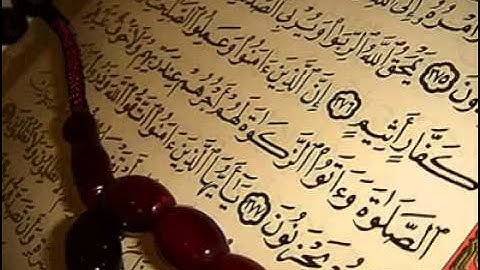 أَمْرُهُۥٓ إِلَى
ونَ ٢٧٥ يَمْحَقُ ٱللَّهُ ٱلرِّبَوٰا۟ وَيُرْبِى ٱلصَّدَ
كَفَّارٍ أَثِيمٍ ٢٧٦ إِنَّ ٱلَّذِينَ ءَامَنُوا۟ وَعَمِلُوا۟ ٱلصَّٰلِحَ
ٱلصَّلَوٰةَ وَءَاتَوُا۟ ٱلزَّكَوٰةَ لَهُمْ أَجْرُهُمْ عِندَ رَبِّهِمْ وَلَا خَوْفٌ
يَحْزَنُونَ ٢٧٧ يَٰٓأَيُّهَا ٱلَّذِينَ ءَامَنُوا۟ ٱتَّقُوا۟ ٱللَّهَ وَذَرُوا۟